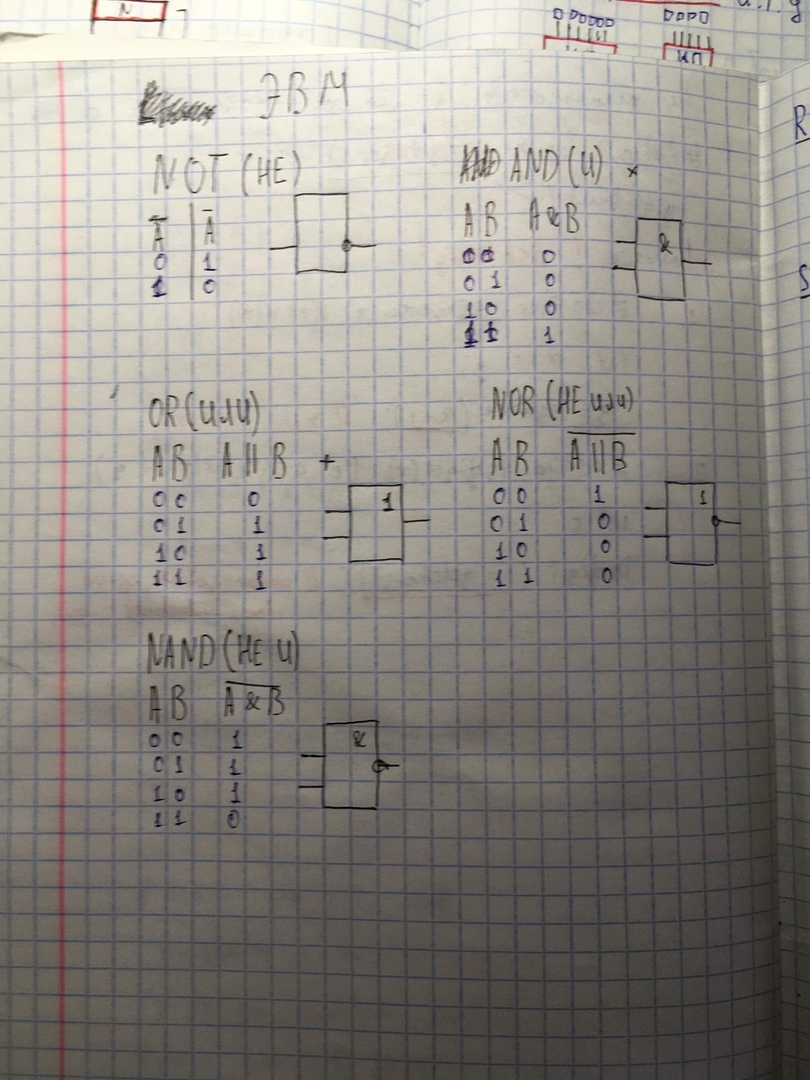 N
ИП
ЭВМ
NOT (НЕ)
A̅ A̅
0 1
1 0
AND (И) *
A B A & B
0 0 0
0 1 0
1 0 0
1 1 1
&
OR (или)
A B A || B +
0 0 0
0 1 1
1 0 1
1 1 1
1
NOR (НЕ или)
A B A || B
0 0 1
0 1 0
1 0 0
1 1 0
1
NAND (НЕ И)
A B A & B
0 0 1
0 1 1
1 0 1
1 1 0
&
R
S